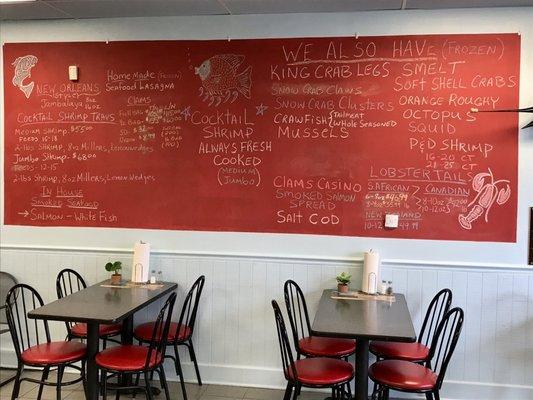 NEW ORLEANS
Jambalaya
8oz
16oz
COCKTAIL SHRIMP TRAYS
MEDIUM SHRIMP-
FEEDS
2-lbs SHRIMP, 8oz Millers, Lemon wedges
Jumbo Shrimp- $68.00
FEEDS-12-15
2-lbs SHRIMP, 8oz Millers, Lemon Wedges
IN HOUSE
SMOKED SEAFOOD
→SALMON - WHITE FISH
HOME MADE (FROZEN)
SEAFOOD LASAGNA
CLAMS
COCKTAIL
SHRIMP
ALWAYS FRESH
COOKED
(MEDIUM
JUMBO)
WE ALSO HAVE (FROZEN)
KING CRAB LEGS
SNOW CRAB CLAWS
SNOW CRAB CLUSTERS
CRAWFISH
WHOLE SEASONED
MUSSELS
CLAMS CASINO
SMOKED SALMON
SPREAD
SALT COD
SMELT
SOFT SHELL CRABS
ORANGE ROUGHY
OCTOPUS
SQUID
P&D SHRIMP
16-20 CT
21-25 CT
LOBSTER TAILS
S. AFRICAN
CANADIAN